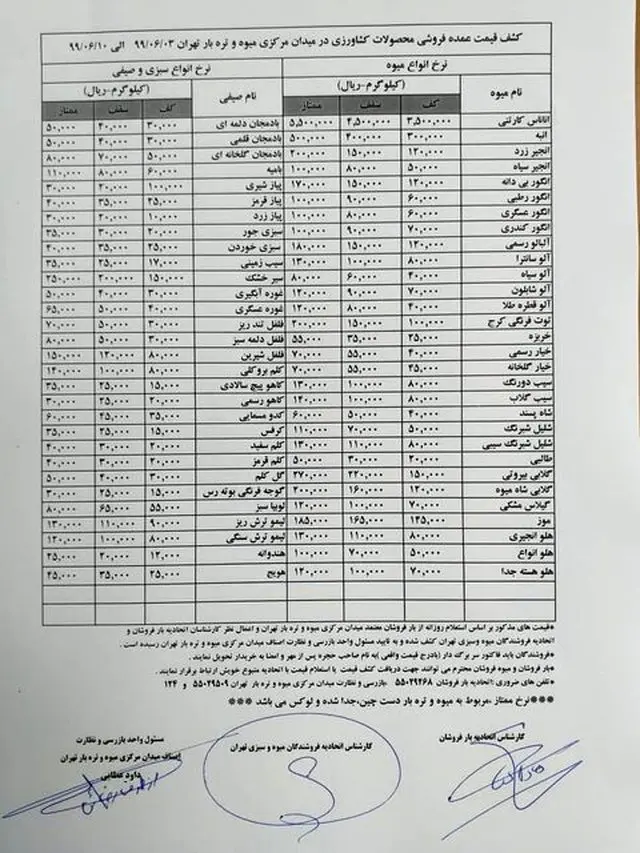 کشف قیمت عمده فروشی محصولات کشاورزی در میدان مرکزی میوه و تره بار تهران ۹۹/۰۶/۰۳ الی ۹۹/۰۶/۱۰
نرخ انواع میوه
نرخ انواع سبزی و صیفی
نام میوه (کیلوگرم-ریال) نام صیفی (کیلوگرم-ریال)
کف سقف ممتاز کف سقف ممتاز
آناناس کارتنی ۳,۵۰۰,۰۰۰ ۴,۵۰۰,۰۰۰ ۵,۵۰۰,۰۰۰ بادمجان دلمه ای ۳۰,۰۰۰ ۴۰,۰۰۰ ۵۰,۰۰۰
انبه ۳۰۰,۰۰۰ ۴۰۰,۰۰۰ ۵۰۰,۰۰۰ بادمجان قلمی ۳۰,۰۰۰ ۴۰,۰۰۰ ۵۰,۰۰۰
انجیر زرد ۱۲۰,۰۰۰ ۱۵۰,۰۰۰ ۲۰۰,۰۰۰ بادمجان گلخانه ای ۵۰,۰۰۰ ۷۰,۰۰۰ ۸۰,۰۰۰
انجیر سیاه ۵۰,۰۰۰ ۸۰,۰۰۰ ۱۰۰,۰۰۰ بامیه ۶۰,۰۰۰ ۸۰,۰۰۰ ۱۱۰,۰۰۰
انگور بی دانه ۱۲۰,۰۰۰ ۱۵۰,۰۰۰ ۱۷۰,۰۰۰ پیاز شیری ۱۰۰,۰۰۰ ۲۰,۰۰۰ ۳۰,۰۰۰
انگور رطبی ۶۰,۰۰۰ ۹۰,۰۰۰ ۱۰۰,۰۰۰ پیاز قرمز ۲۵,۰۰۰ ۳۵,۰۰۰ ۴۰,۰۰۰
انگور عسگری ۶۰,۰۰۰ ۸۰,۰۰۰ ۱۰۰,۰۰۰ پیاز زرد ۱۰,۰۰۰ ۲۰,۰۰۰ ۳۰,۰۰۰
انگور کندری ۷۰,۰۰۰ ۹۰,۰۰۰ ۱۰۰,۰۰۰ سبزی جور ۲۰,۰۰۰ ۳۰,۰۰۰ ۳۵,۰۰۰
آلبالو رسمی ۱۲۰,۰۰۰ ۱۵۰,۰۰۰ ۱۸۰,۰۰۰ سبزی خوردن ۲۵,۰۰۰ ۳۵,۰۰۰ ۴۰,۰۰۰
آلو سانترا ۸۰,۰۰۰ ۱۰۰,۰۰۰ ۱۳۰,۰۰۰ سیب زمینی ۱۷,۰۰۰ ۲۵,۰۰۰ ۳۵,۰۰۰
آلو سیاه ۴۰,۰۰۰ ۶۰,۰۰۰ ۸۰,۰۰۰ سیر خشک ۱۵۰,۰۰۰ ۲۰۰,۰۰۰ ۲۵۰,۰۰۰
آلو شابلون ۷۰,۰۰۰ ۹۰,۰۰۰ ۱۲۰,۰۰۰ غوره آبگیری ۳۰,۰۰۰ ۴۰,۰۰۰ ۵۰,۰۰۰
آلو قطره طلا ۴۰,۰۰۰ ۸۰,۰۰۰ ۱۲۰,۰۰۰ غوره عسگری ۴۰,۰۰۰ ۵۰,۰۰۰ ۶۵,۰۰۰
توت فرنگی کرج ۱۰۰,۰۰۰ ۱۵۰,۰۰۰ ۲۰۰,۰۰۰ فلفل تند ریز ۳۰,۰۰۰ ۵۰,۰۰۰ ۷۰,۰۰۰
خربزه ۲۵,۰۰۰ ۳۵,۰۰۰ ۵۵,۰۰۰ فلفل دلمه سبز ۳۰,۰۰۰ ۵۰,۰۰۰ ۸۰,۰۰۰
خیار رسمی ۴۰,۰۰۰ ۵۵,۰۰۰ ۷۰,۰۰۰ فلفل شیرین ۸۰,۰۰۰ ۱۲۰,۰۰۰ ۱۵۰,۰۰۰
خیار گلخانه ۴۵,۰۰۰ ۵۵,۰۰۰ ۷۰,۰۰۰ کلم بروکلی ۸۰,۰۰۰ ۱۰۰,۰۰۰ ۱۴۰,۰۰۰
سیب دورنگ ۸۰,۰۰۰ ۱۰۰,۰۰۰ ۱۳۰,۰۰۰ کاهو پیچ سالادی ۱۵,۰۰۰ ۲۵,۰۰۰ ۳۵,۰۰۰
سیب گلاب ۸۰,۰۰۰ ۱۰۰,۰۰۰ ۱۴۰,۰۰۰ کاهو رسمی ۲۰,۰۰۰ ۲۵,۰۰۰ ۳۰,۰۰۰
شاه پسند ۴۰,۰۰۰ ۵۰,۰۰۰ ۶۰,۰۰۰ کدو مسمایی ۳۵,۰۰۰ ۴۵,۰۰۰ ۶۰,۰۰۰
شلیل شبرنگ ۵۰,۰۰۰ ۷۰,۰۰۰ ۱۱۰,۰۰۰ کرفس ۱۵,۰۰۰ ۲۵,۰۰۰ ۳۵,۰۰۰
شلیل شبرنگ سیبی ۸۰,۰۰۰ ۱۱۰,۰۰۰ ۱۳۰,۰۰۰ کلم سفید ۲۰,۰۰۰ ۳۰,۰۰۰ ۴۰,۰۰۰
طالبی ۲۰,۰۰۰ ۳۰,۰۰۰ ۵۰,۰۰۰ کلم قرمز ۲۰,۰۰۰ ۳۰,۰۰۰ ۴۰,۰۰۰
گلابی بیروتی ۱۵۰,۰۰۰ ۲۲۰,۰۰۰ ۲۷۰,۰۰۰ گل کلم ۳۰,۰۰۰ ۴۰,۰۰۰ ۵۰,۰۰۰
گلابی شاه میوه ۱۲۰,۰۰۰ ۱۶۰,۰۰۰ ۲۰۰,۰۰۰ گوجه فرنگی بوته رس ۱۵,۰۰۰ ۲۵,۰۰۰ ۳۰,۰۰۰
گیلاس مشکی ۷۰,۰۰۰ ۱۰۰,۰۰۰ ۱۲۰,۰۰۰ لوبیا سبز ۵۵,۰۰۰ ۶۵,۰۰۰ ۸۰,۰۰۰
موز ۱۴۵,۰۰۰ ۱۶۵,۰۰۰ ۱۸۵,۰۰۰ لیمو ترش ریز ۹۰,۰۰۰ ۱۱۰,۰۰۰ ۱۳۰,۰۰۰
هلو انجیری ۸۰,۰۰۰ ۱۱۰,۰۰۰ ۱۳۰,۰۰۰ لیمو ترش سنگی ۸۰,۰۰۰ ۱۰۰,۰۰۰ ۱۲۰,۰۰۰
هلو انواع ۵۰,۰۰۰ ۷۰,۰۰۰ ۱۰۰,۰۰۰ هندوانه ۱۲,۰۰۰ ۲۰,۰۰۰ ۲۵,۰۰۰
هلو هسته جدا ۷۰,۰۰۰ ۱۰۰,۰۰۰ ۱۲۰,۰۰۰ هویج ۲۵,۰۰۰ ۳۵,۰۰۰ ۴۵,۰۰۰
*قیمت های مذکور بر اساس استعلام روزانه از بار فروشان معتمد میدان مرکزی میوه و تره بار تهران و اعمال نظر کارشناسان اتحادیه بار فروشان و
اتحادیه فروشندگان میوه وسبزی تهران کشف شده و به تایید مسئول واحد بازرسی و نظارت اصناف میدان مرکزی میوه و تره بار تهران رسیده است .
*فروشندگان باید فاکتور سر برگ دار (بادرج قیمت واقعی )به نام صاحب حجره پس از مهر و امضا به خریدار تحویل نمایند .
*بار فروشان و میوه فروشان محترم می توانند جهت دریافت کشف قیمت یا استعلام قیمت با اتحادیه متبوع خویش ارتباط برقرار نمایند .
*تلفن های ضروری :اتحادیه بار فروشان ۵۵۰۲۹۲۶۸ بازرسی و نظارت میدان مرکزی میوه و تره بار تهران ۵۵۰۲۹۵۰۹ و ۱۲۴
***نرخ ممتاز ،مربوط به میوه و تره بار دست چین،جدا شده و لوکس می باشد ***
کارشناس اتحادیه بار فروشان
کارشناس اتحادیه فروشندگان میوه و سبزی تهران
مسئول واحد بازرسی و نظارت
اصناف میدان مرکزی میوه و تره بار تهران
داود عطایی